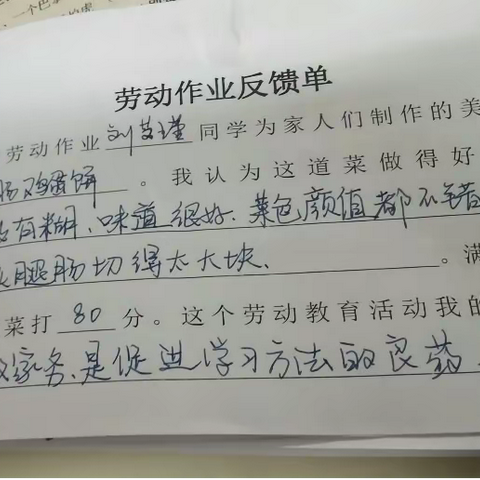 劳动作业反馈单
劳动作业刘艾瑾同学为家人们制作的美
肠鸡蛋饼。我认为这道菜做得好
没有糊、味道很好、菜色颜值都不错
火腿肠切得太大块、。满
菜打80分。这个劳动教育活动我的
做家务、是促进学习方法的良药、